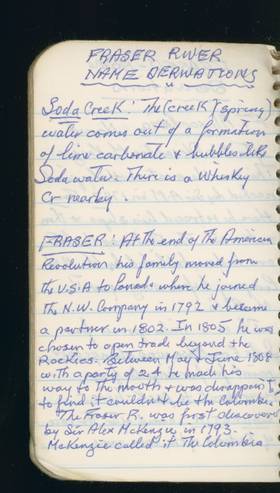 FRASER RIVER
NAME DERIVATIONS
Soda Creek: The (creek) spring
water comes out of a formation
of lime carbonate & bubbles like
Soda water. There is a Whiskey
Cr nearby.
FRASER: At the end of the American
Revolution his family moved from
the U.S.A to Canada where he joined
the N.W. Company in 1792 & became
a partner in 1802. In 1805 he was
chosen to open trade beyond the
Rockies. Between May & June 1808
with a party of 24 he made his
way to the mouth & was disappointed
to find it couldn't be the Columbia.
The Fraser R. was first discovered
by Sir Alex McKenzie in 1793.
McKenzie called it The Columbia